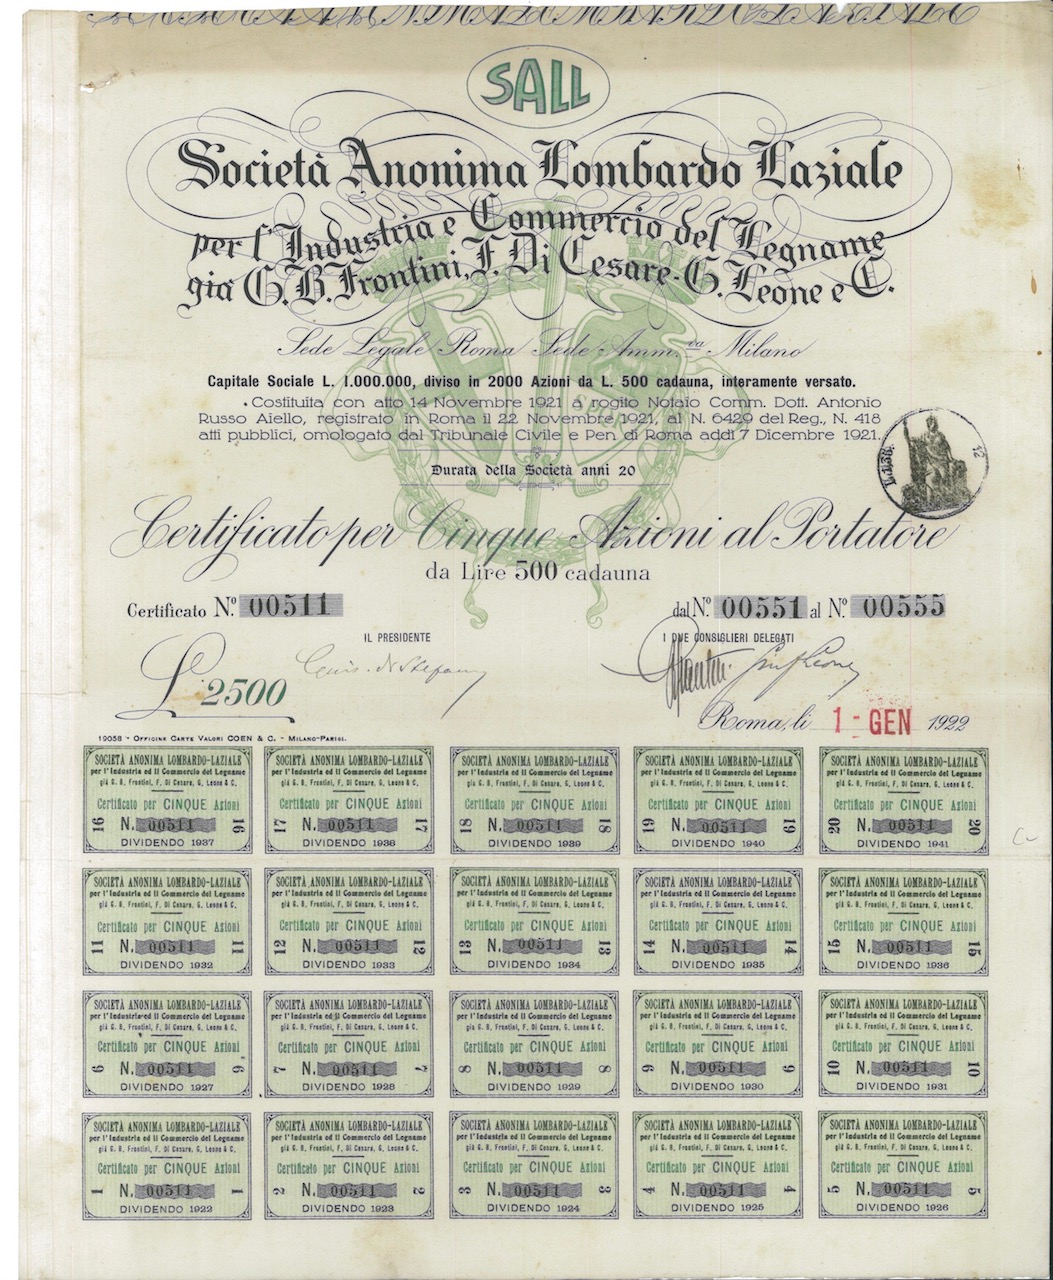 SALL
Società Anonima Lombardo Laziale
per l'Industria e Commercio del Legname
già G. B. Frontini, F. Di Cesare - G. Leone e C.
Sede Legale Roma Sede Amm.va Milano
Capitale Sociale L. 1.000.000, diviso in 2000 Azioni da L. 500 cadauna, interamente versato.
Costituita con atto 14 Novembre 1921 a rogito Notaio Comm. Dott. Antonio
Russo Aiello, registrato in Roma il 22 Novembre 1921, al N. 6429 del Reg., N. 418
atti pubblici, omologato dal Tribunale Civile e Pen. di Roma addì 7 Dicembre 1921.
L.1,36.
12
Durata della Società anni 20
Certificato per Cinque Azioni al Portatore
da Lire 500 cadauna
Certificato N.º 00511 dal N.º 00551 al N.º 00555
IL PRESIDENTE I DUE CONSIGLIERI DELEGATI
L. 2500
Roma, li 1 - GEN 1922
19058 - Officine Carte Valori COEN & C. - Milano-Parigi.
SOCIETÀ ANONIMA LOMBARDO-LAZIALE SOCIETÀ ANONIMA LOMBARDO-LAZIALE SOCIETÀ ANONIMA LOMBARDO-LAZIALE SOCIETÀ ANONIMA LOMBARDO-LAZIALE SOCIETÀ ANONIMA LOMBARDO-LAZIALE
per l'Industria ed il Commercio del Legname per l'Industria ed il Commercio del Legname per l'Industria ed il Commercio del Legname per l'Industria ed il Commercio del Legname per l'Industria ed il Commercio del Legname
già G. B. Frontini, F. Di Cesare, G. Leone & C. già G. B. Frontini, F. Di Cesare, G. Leone & C. già G. B. Frontini, F. Di Cesare, G. Leone & C. già G. B. Frontini, F. Di Cesare, G. Leone & C. già G. B. Frontini, F. Di Cesare, G. Leone & C.
Certificato per CINQUE Azioni Certificato per CINQUE Azioni Certificato per CINQUE Azioni Certificato per CINQUE Azioni Certificato per CINQUE Azioni
16 N. 00511 16 17 N. 00511 17 18 N. 00511 18 19 N. 00511 19 20 N. 00511 20
DIVIDENDO 1937 DIVIDENDO 1938 DIVIDENDO 1939 DIVIDENDO 1940 DIVIDENDO 1941
SOCIETÀ ANONIMA LOMBARDO-LAZIALE SOCIETÀ ANONIMA LOMBARDO-LAZIALE SOCIETÀ ANONIMA LOMBARDO-LAZIALE SOCIETÀ ANONIMA LOMBARDO-LAZIALE SOCIETÀ ANONIMA LOMBARDO-LAZIALE
per l'Industria ed il Commercio del Legname per l'Industria ed il Commercio del Legname per l'Industria ed il Commercio del Legname per l'Industria ed il Commercio del Legname per l'Industria ed il Commercio del Legname
già G. B. Frontini, F. Di Cesare, G. Leone & C. già G. B. Frontini, F. Di Cesare, G. Leone & C. già G. B. Frontini, F. Di Cesare, G. Leone & C. già G. B. Frontini, F. Di Cesare, G. Leone & C. già G. B. Frontini, F. Di Cesare, G. Leone & C.
Certificato per CINQUE Azioni Certificato per CINQUE Azioni Certificato per CINQUE Azioni Certificato per CINQUE Azioni Certificato per CINQUE Azioni
11 N. 00511 11 12 N. 00511 12 13 N. 00511 13 14 N. 00511 14 15 N. 00511 15
DIVIDENDO 1932 DIVIDENDO 1933 DIVIDENDO 1934 DIVIDENDO 1935 DIVIDENDO 1936
SOCIETÀ ANONIMA LOMBARDO-LAZIALE SOCIETÀ ANONIMA LOMBARDO-LAZIALE SOCIETÀ ANONIMA LOMBARDO-LAZIALE SOCIETÀ ANONIMA LOMBARDO-LAZIALE SOCIETÀ ANONIMA LOMBARDO-LAZIALE
per l'Industria ed il Commercio del Legname per l'Industria ed il Commercio del Legname per l'Industria ed il Commercio del Legname per l'Industria ed il Commercio del Legname per l'Industria ed il Commercio del Legname
già G. B. Frontini, F. Di Cesare, G. Leone & C. già G. B. Frontini, F. Di Cesare, G. Leone & C. già G. B. Frontini, F. Di Cesare, G. Leone & C. già G. B. Frontini, F. Di Cesare, G. Leone & C. già G. B. Frontini, F. Di Cesare, G. Leone & C.
Certificato per CINQUE Azioni Certificato per CINQUE Azioni Certificato per CINQUE Azioni Certificato per CINQUE Azioni Certificato per CINQUE Azioni
6 N. 00511 6 7 N. 00511 7 8 N. 00511 8 9 N. 00511 9 10 N. 00511 10
DIVIDENDO 1927 DIVIDENDO 1928 DIVIDENDO 1929 DIVIDENDO 1930 DIVIDENDO 1931
SOCIETÀ ANONIMA LOMBARDO-LAZIALE SOCIETÀ ANONIMA LOMBARDO-LAZIALE SOCIETÀ ANONIMA LOMBARDO-LAZIALE SOCIETÀ ANONIMA LOMBARDO-LAZIALE SOCIETÀ ANONIMA LOMBARDO-LAZIALE
per l'Industria ed il Commercio del Legname per l'Industria ed il Commercio del Legname per l'Industria ed il Commercio del Legname per l'Industria ed il Commercio del Legname per l'Industria ed il Commercio del Legname
già G. B. Frontini, F. Di Cesare, G. Leone & C. già G. B. Frontini, F. Di Cesare, G. Leone & C. già G. B. Frontini, F. Di Cesare, G. Leone & C. già G. B. Frontini, F. Di Cesare, G. Leone & C. già G. B. Frontini, F. Di Cesare, G. Leone & C.
Certificato per CINQUE Azioni Certificato per CINQUE Azioni Certificato per CINQUE Azioni Certificato per CINQUE Azioni Certificato per CINQUE Azioni
1 N. 00511 1 2 N. 00511 2 3 N. 00511 3 4 N. 00511 4 5 N. 00511 5
DIVIDENDO 1922 DIVIDENDO 1923 DIVIDENDO 1924 DIVIDENDO 1925 DIVIDENDO 1926